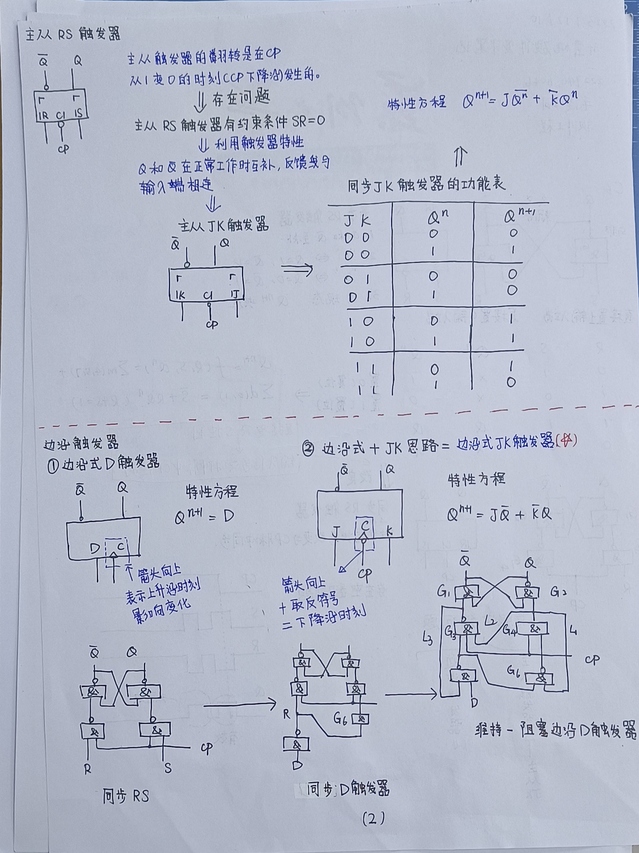 主从 RS 触发器
Q̅ Q
1R C1 1S
CP
主从触发器的翻转是在CP
从1变0的时刻(CP下降沿)发生的。
⇓ 存在问题
主从 RS 触发器有约束条件 SR=0
⇓ 利用触发器特性
Q 和 Q̅ 在正常工作时互补,反馈线与
输入端相连
⇓
主从 JK 触发器
Q̅ Q
1K C1 1J
CP
⇒
特性方程 Qⁿ⁺¹ = JQ̅ⁿ + K̅Qⁿ
⇑
同步JK触发器的功能表
J K Qⁿ Qⁿ⁺¹
0 0 0 0
0 0 1 1
0 1 0 0
0 1 1 0
1 0 0 1
1 0 1 1
1 1 0 1
1 1 1 0
边沿触发器
① 边沿式D触发器
Q̅ Q
D C
特性方程
Qⁿ⁺¹ = D
↑ 箭头向上
表示上升沿时刻
② 边沿式 + JK 思路 = 边沿式JK触发器
Q̅ Q
J C K
CP
特性方程
Qⁿ⁺¹ = JQ̅ + K̅Q
箭头向上
+ 取反符号
= 下降沿时刻
Q̅ Q
& &
& &
R S
CP
同步 RS
& &
& &
R G6 &
&
D
同步D触发器
Q̅ Q
G1 & & G2
L3 G3 & L2 G4 & L1
CP
& G6 &
D
维持-阻塞边沿D触发器
(2)